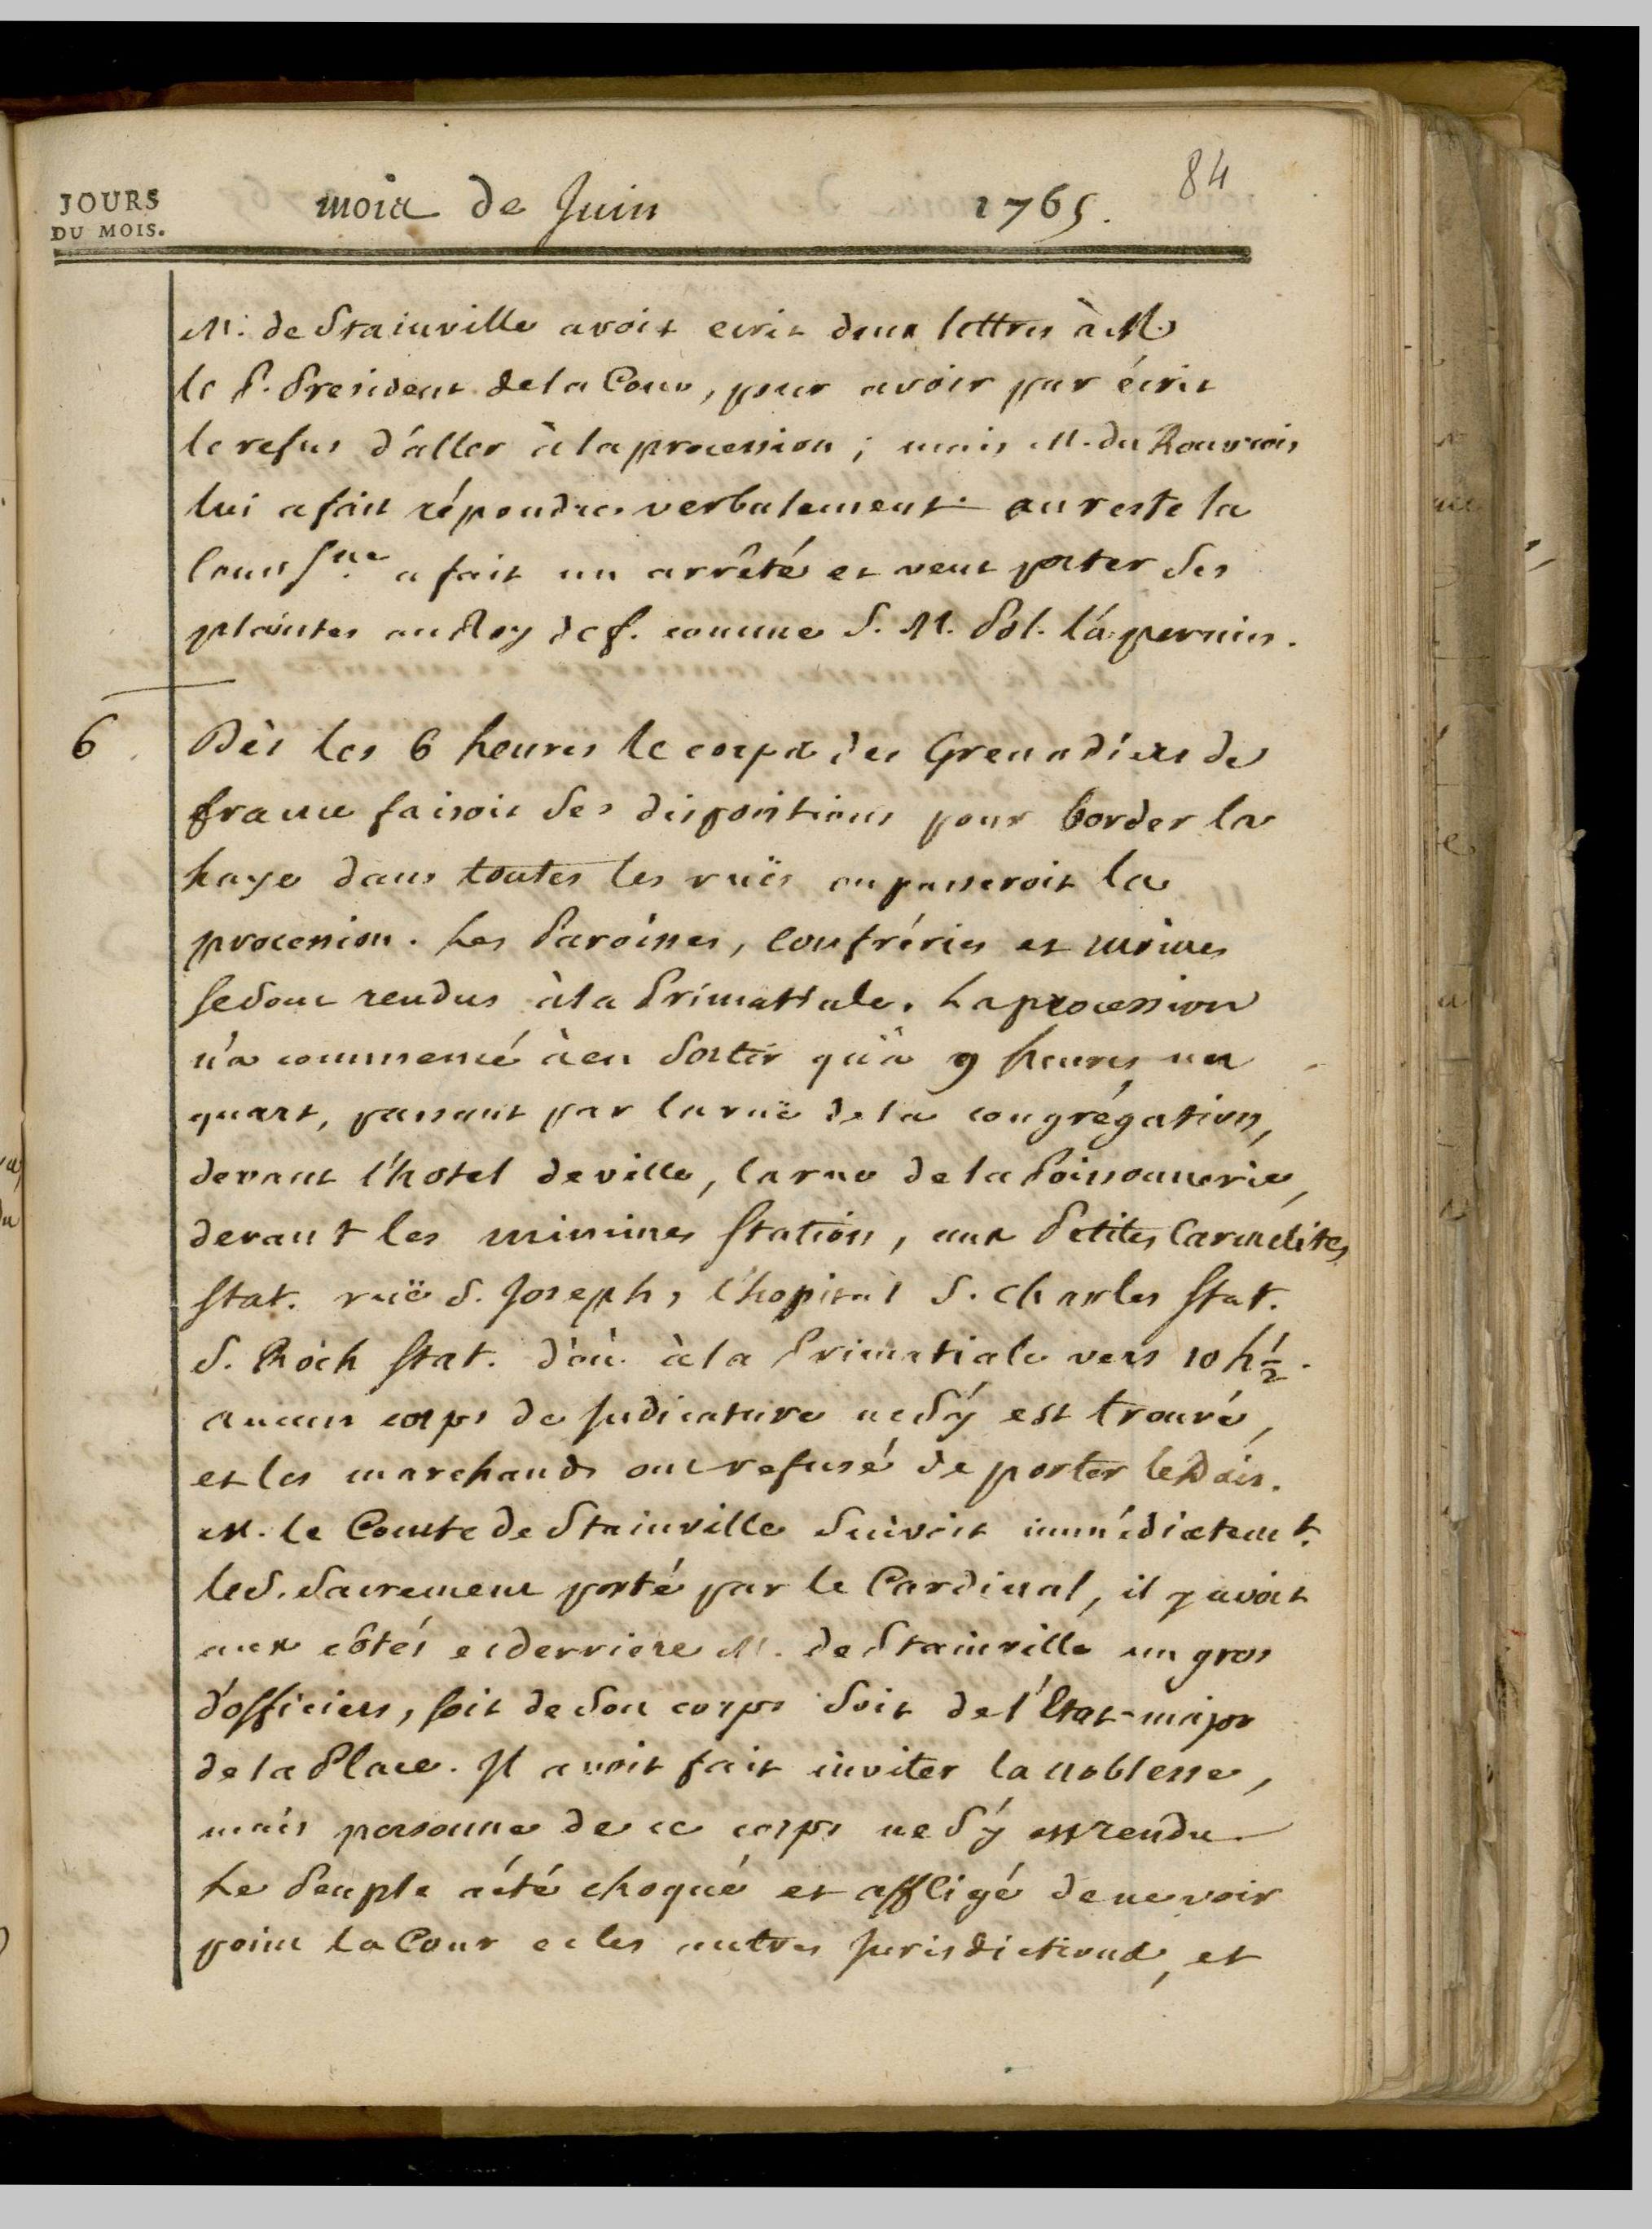 84
JOURS
DU MOIS.
mois de Juin 1765.
M. de Stainville avoit ecrit deux lettres à M.
le P. President de la Cour, pour avoir par écrit
le refus d'aller à la procession ; mais M. du Rouvrois
lui a fait répondre verbalement. au reste la
Cour Sne. a fait un arrêté et veut porter ses
plaintes au Roy de f. comme S. M. Pol. l'a permis.
6 Dès les 6 heures le corps des Grenadiers de
france faisoit ses dispositions pour border la
haye dans toutes les ruës ou passeroit la
procession. Les Paroisses, Confréries et moines
se sont rendus à la Primatiale. La procession
n'a commencé à en sortir qu'à 9 heures un
quart, passant par la ruë de la congrégation,
devant l'hotel de ville, la rue de la Poissonnerie,
devant les minimes Station, aux Petites Carmelites
Stat. ruë S. Joseph, l'hopital S. Charles Stat.
S. Roch Stat. d'où à la Primatiale vers 10 h 1/2.
aucun corps de Judicature ne s'y est trouvé,
et les marchands ont refusé de porter le Dais.
M. le Comte de Stainville suivoit immédiatemt.
le S. Sacrement porté par le Cardinal, il y avoit
aux côtés et derriere M. de Stainville un gros
d'officiers, soit de son corps soit de l'Etat-major
de la Place. Il avoit fait inviter la noblesse,
mais personne de ce corps ne s'y est rendu.
Le Peuple a été choqué et affligé de ne voir
point la Cour et les autres Jurisdictions, et